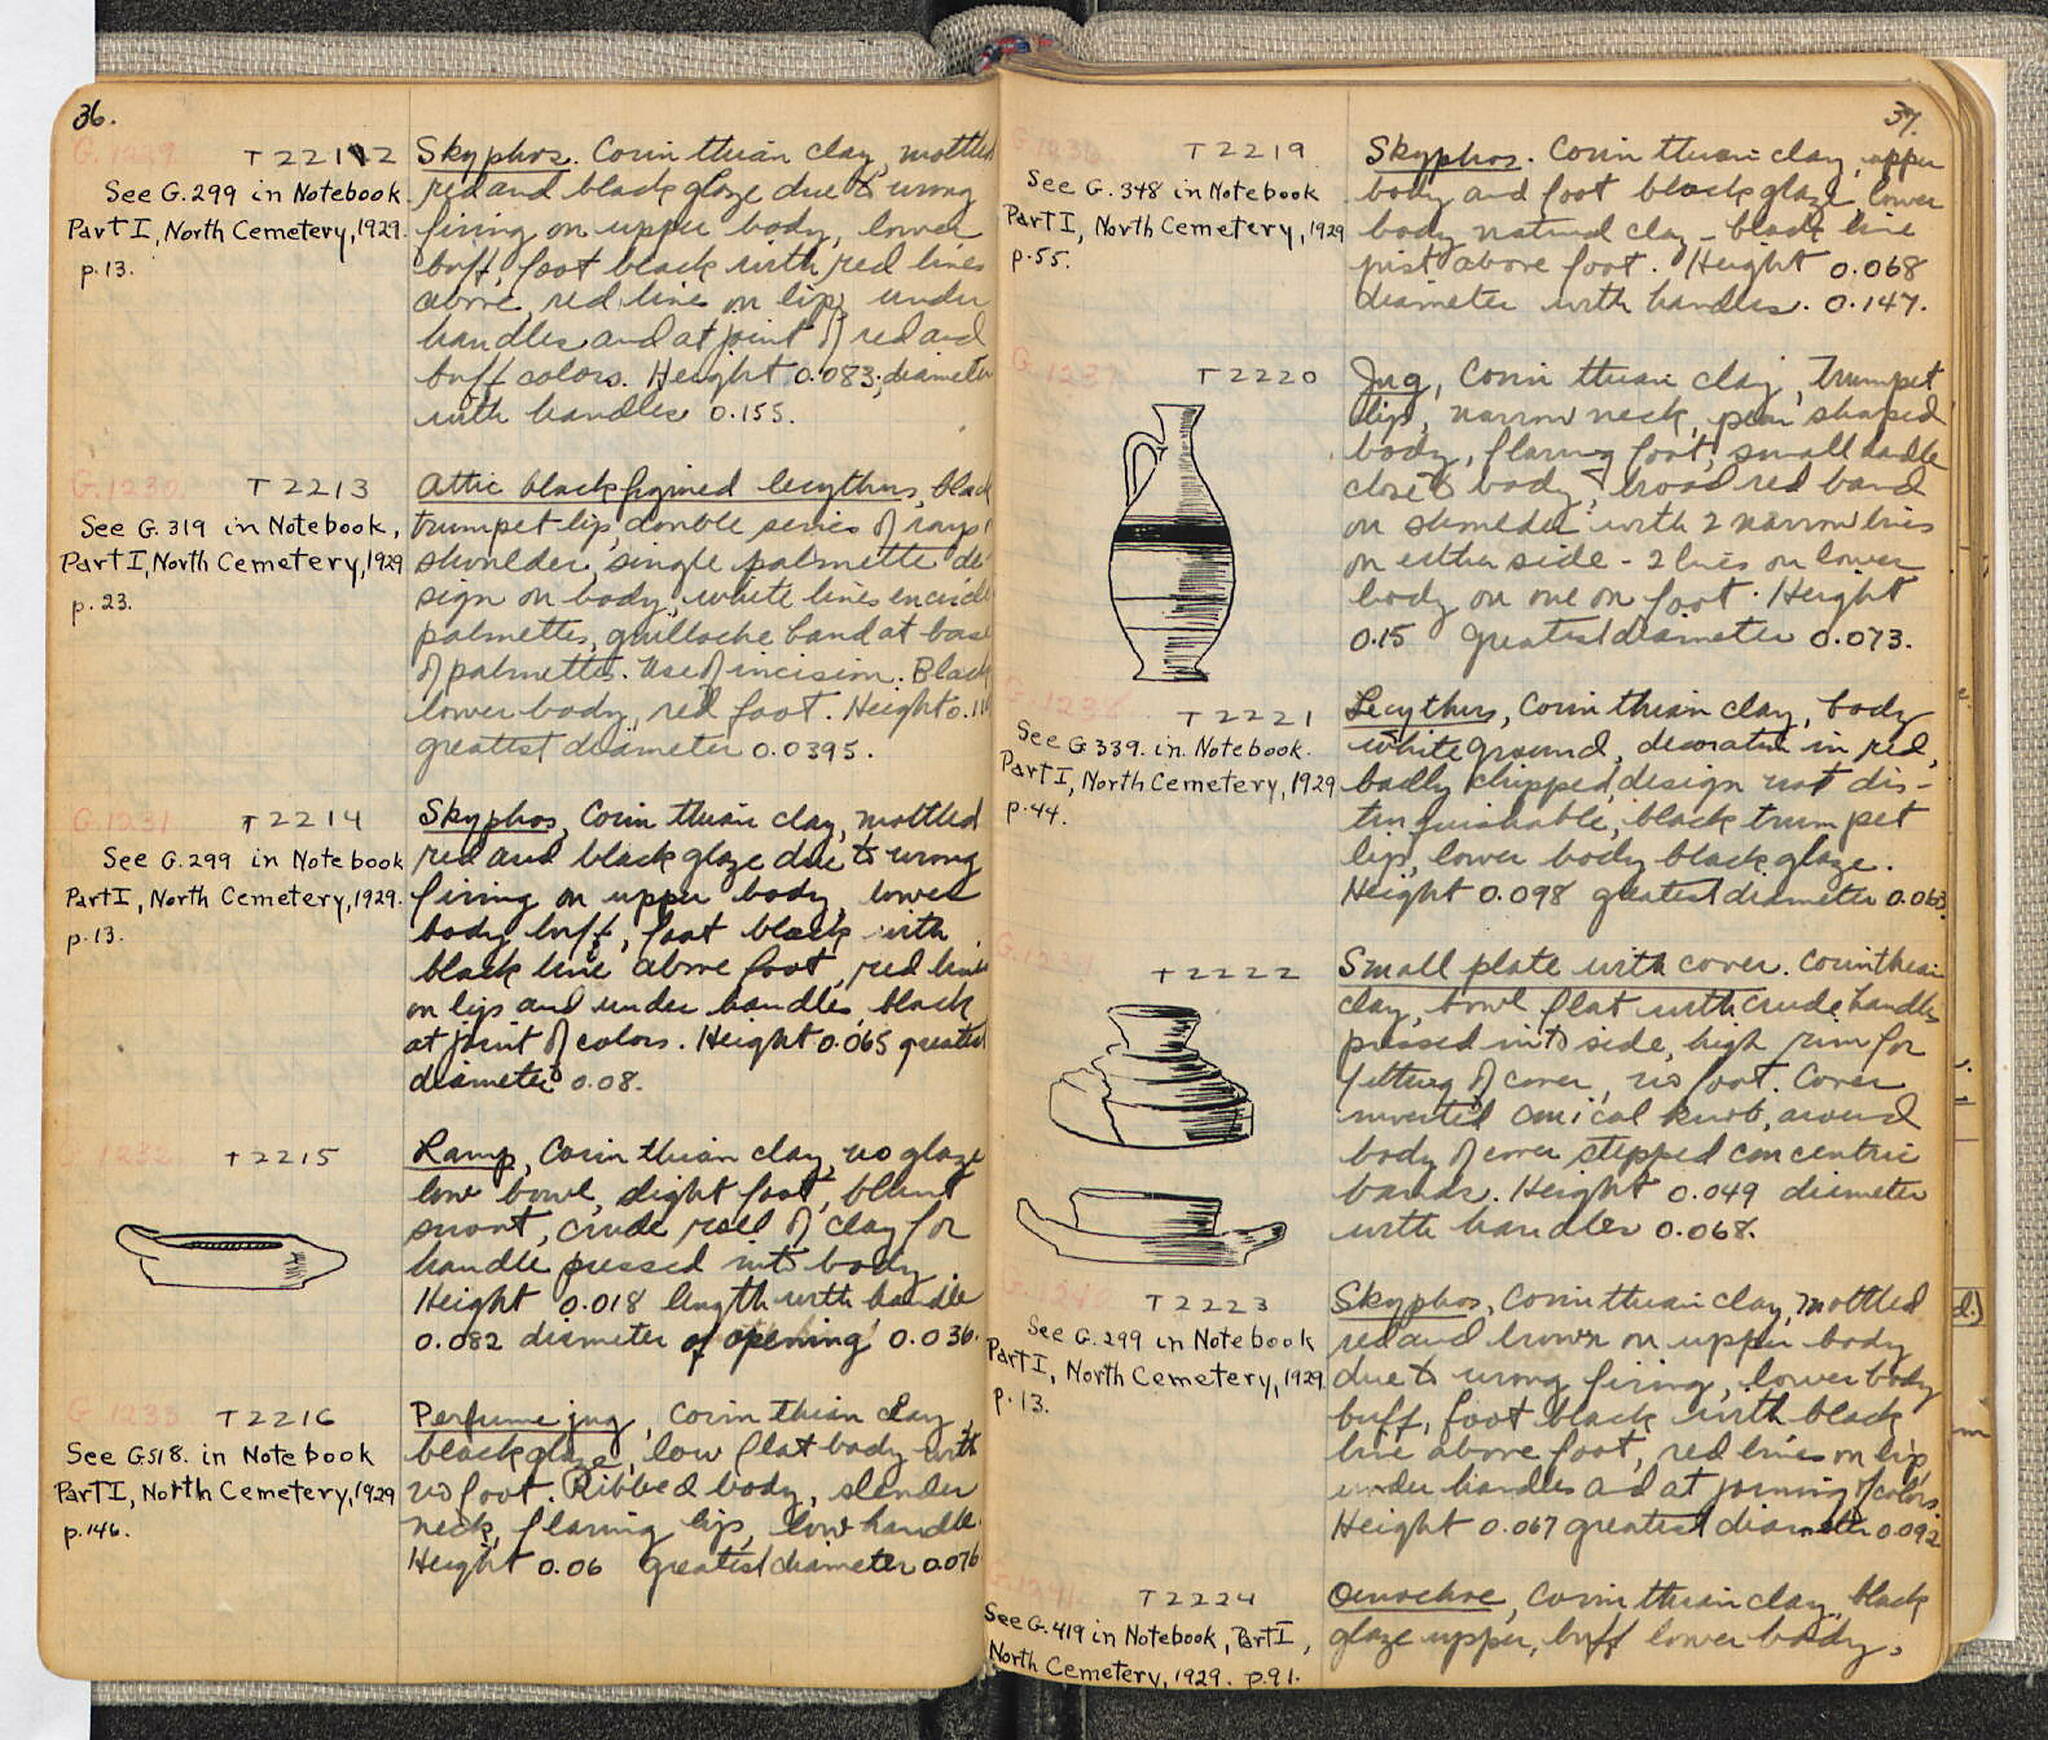 36.
G.1229 T2212 Skyphos. Corinthian clay, mottled
See G.299 in Notebook red and black glaze due to wrong
Part I, North Cemetery, 1929. firing on upper body, lower
p.13. buff, foot black with red lines
above, red line on lip, under
handles and at joint of red and
buff colors. Height 0.083; diameter
with handles 0.155.
G.1230 T2213 Attic black figured lecythus, black
See G. 319 in Notebook, trumpet lip, double series of rays
Part I, North Cemetery, 1929 shoulder, single palmette de-
p. 23. sign on body, white lines encircle
palmettes, guilloche band at base
of palmettes. Use of incision. Black
lower body, red foot. Height
greatest diameter 0.0395.
G.1231 T2214 Skyphos, Corinthian clay, mottled
See G.299 in Notebook red and black glaze due to wrong
Part I, North Cemetery, 1929. firing on upper body, lower
p.13. body buff, foot black with
black line above foot, red lines
on lips and under handles, black
at joint of colors. Height 0.065 greatest
diameter 0.08.
1232 T2215 Lamp, Corinthian clay, no glaze
low bowl, slight foot, blunt
snout, crude roll of clay for
handle pressed into body.
Height 0.018 length with handle
0.082 diameter of opening 0.036.
G.1233 T2216 Perfume jug, Corinthian clay,
See G518. in Notebook black glaze, low flat body with
Part I, North Cemetery, 1929 no foot. Ribbed body, slender
p.146. neck, flaring lip, low handle.
Height 0.06 greatest diameter 0.076
37.
G.1236 T2219 Skyphos. Corinthian clay, upper
See G. 348 in Notebook body and foot black glaze, lower
Part I, North Cemetery, 1929 body natural clay - black line
p.55. just above foot. Height 0.068
diameter with handles. 0.147.
G.1237 T2220 Jug, Corinthian clay, Trumpet
lip, narrow neck, pear shaped
body, flaring foot, small handle
close to body, broad red band
on shoulder with 2 narrow lines
on either side - 2 lines on lower
body on one on foot. Height
0.15 greatest diameter 0.073.
G.1238 T2221 Lecythus, Corinthian clay, body
See G 339. in Notebook. white ground, decorated in red,
Part I, North Cemetery, 1929 badly chipped, design not dis-
p.44. tinguishable, black trumpet
lip, lower body black glaze.
Height 0.098 greatest diameter 0.063.
G.1239 T2222 Small plate with cover. Corinthian
clay, bowl flat with crude handles
pressed into side, high rim for
fitting of cover, no foot. Cover
inverted conical knob, around
body of cover stepped concentric
bands. Height 0.049 diameter
with handles 0.068.
G.1240 T2223 Skyphos, Corinthian clay, mottled
See G.299 in Notebook red and brown on upper body
Part I, North Cemetery, 1929 due to wrong firing, lower body
p.13. buff, foot black with black
line above foot, red lines on lip,
under handles and at joining of colors.
Height 0.067 greatest diameter 0.092
G.1241 T2224 Oinochoe, Corinthian clay, black
See G.419 in Notebook, Part I, glaze upper, buff lower body,
North Cemetery, 1929. p.91.